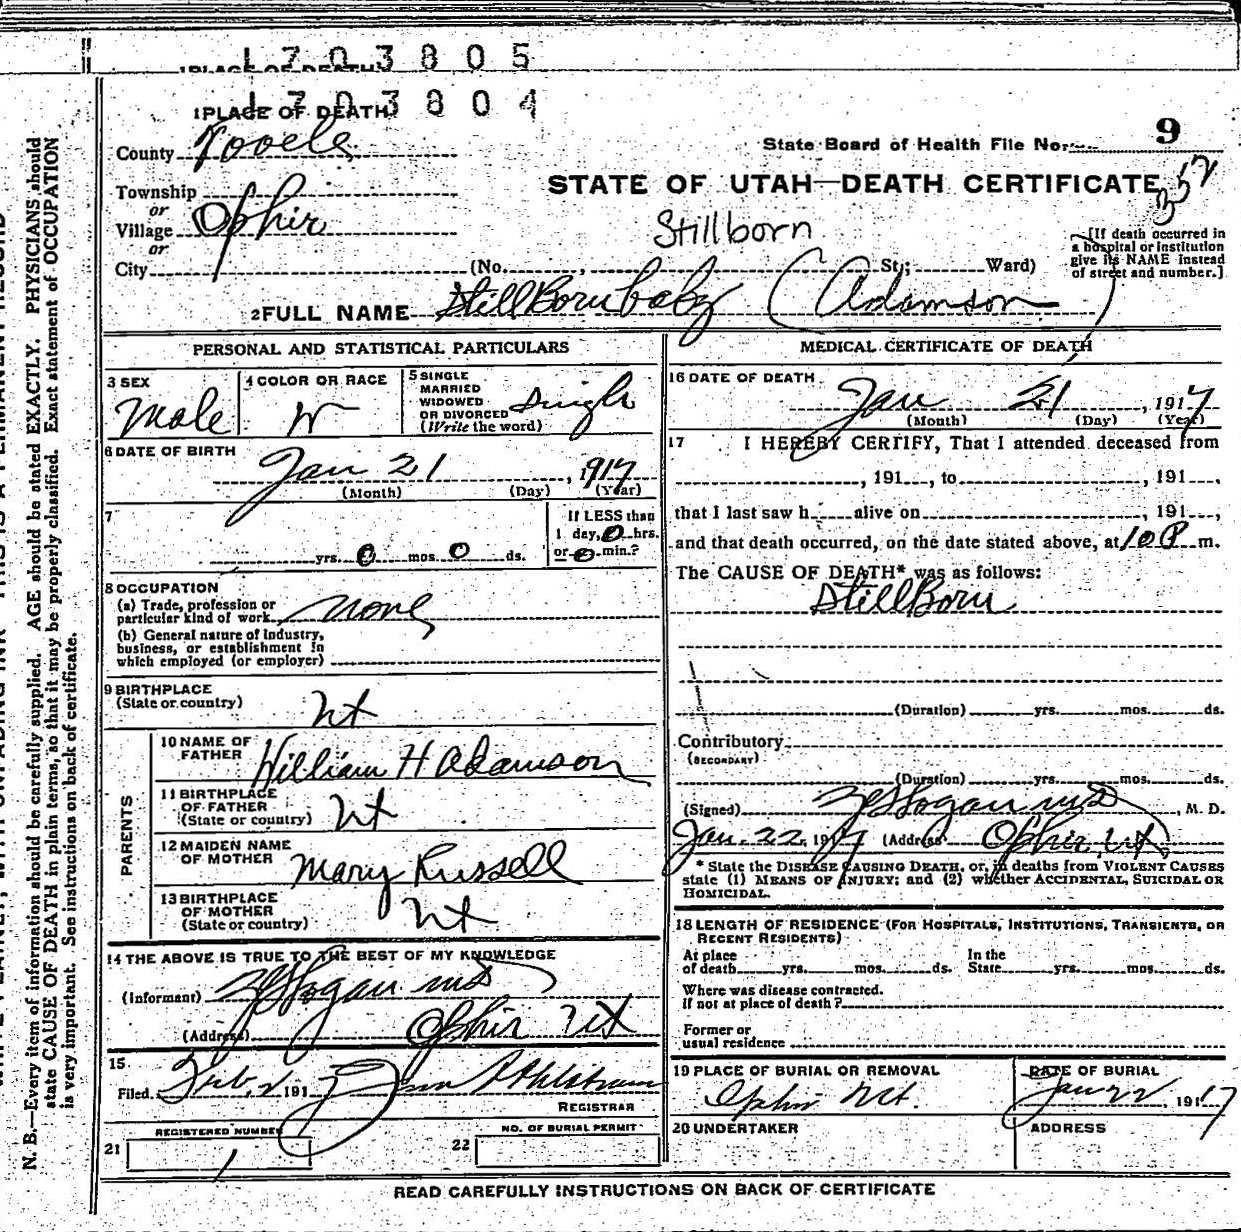 1703805
1 PLACE OF DEATH
1703804
1 PLACE OF DEATH
County Tooele
State Board of Health File No. 9
352
Township
or
Village Ophir
or
City
STATE OF UTAH—DEATH CERTIFICATE
Stillborn
(No. , St.; Ward)
[If death occurred in
a hospital or institution
give its NAME instead
of street and number.]
2 FULL NAME StillBorn baby (Adamson)
PERSONAL AND STATISTICAL PARTICULARS
3 SEX
Male
4 COLOR OR RACE
W
5 SINGLE
MARRIED
WIDOWED
OR DIVORCED
(Write the word)
Single
6 DATE OF BIRTH
Jan 21, 1917
(Month) (Day) (Year)
7
yrs. 0 mos. 0 ds.
If LESS than
1 day, 0 hrs.
or 0 min.?
8 OCCUPATION
(a) Trade, profession or
particular kind of work none
(b) General nature of Industry,
business, or establishment in
which employed (or employer)
9 BIRTHPLACE
(State or country)
Ut
PARENTS
10 NAME OF
FATHER
William H Adamson
11 BIRTHPLACE
OF FATHER
(State or country)
Ut
12 MAIDEN NAME
OF MOTHER
Mary Russell
13 BIRTHPLACE
OF MOTHER
(State or country)
Ut
14 THE ABOVE IS TRUE TO THE BEST OF MY KNOWLEDGE
(Informant) Hogan MD
(Address) Ophir Ut
15
Filed Feb. 2 1917
REGISTRAR
REGISTERED NUMBER
21
1
NO. OF BURIAL PERMIT
22
MEDICAL CERTIFICATE OF DEATH
16 DATE OF DEATH
Jan 21, 1917
(Month) (Day) (Year)
17 I HEREBY CERTIFY, That I attended deceased from
, 191 , to , 191 ,
that I last saw h alive on , 191 ,
and that death occurred, on the date stated above, at 10 P m.
The CAUSE OF DEATH* was as follows:
StillBorn
(Duration) yrs. mos. ds.
Contributory
(SECONDARY)
(Duration) yrs. mos. ds.
(Signed) Hogan MD, M. D.
Jan. 22, 1917 (Address Ophir, Ut
* State the DISEASE CAUSING DEATH, or, in deaths from VIOLENT CAUSES
state (1) MEANS OF INJURY; and (2) whether ACCIDENTAL, SUICIDAL OR
HOMICIDAL.
18 LENGTH OF RESIDENCE (FOR HOSPITALS, INSTITUTIONS, TRANSIENTS, OR
RECENT RESIDENTS)
At place
of death yrs. mos. ds.
In the
State yrs. mos. ds.
Where was disease contracted.
If not at place of death?
Former or
usual residence
19 PLACE OF BURIAL OR REMOVAL
Ophir Ut.
DATE OF BURIAL
Jan 22, 1917
20 UNDERTAKER
ADDRESS
READ CAREFULLY INSTRUCTIONS ON BACK OF CERTIFICATE
N. B.—Every item of information should be carefully supplied. AGE should be stated EXACTLY. PHYSICIANS should
state CAUSE OF DEATH in plain terms, so that it may be properly classified. Exact statement of OCCUPATION
is very important. See instructions on back of certificate.